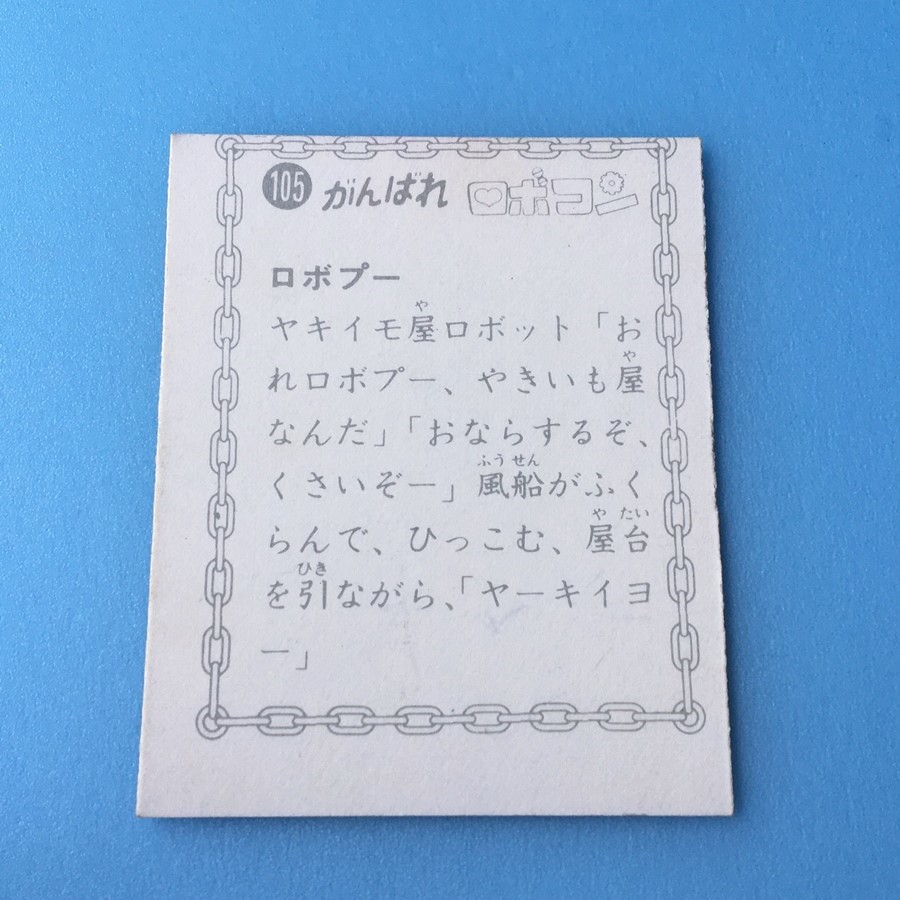 105 がんばれ ロボコン
ロボプー
ヤキイモ屋ロボット「お
れロボプー、やきいも屋
なんだ」「おならするぞ、
くさいぞー」風船がふく
らんで、ひっこむ、屋台
を引ながら、「ヤーキイヨ
ー」